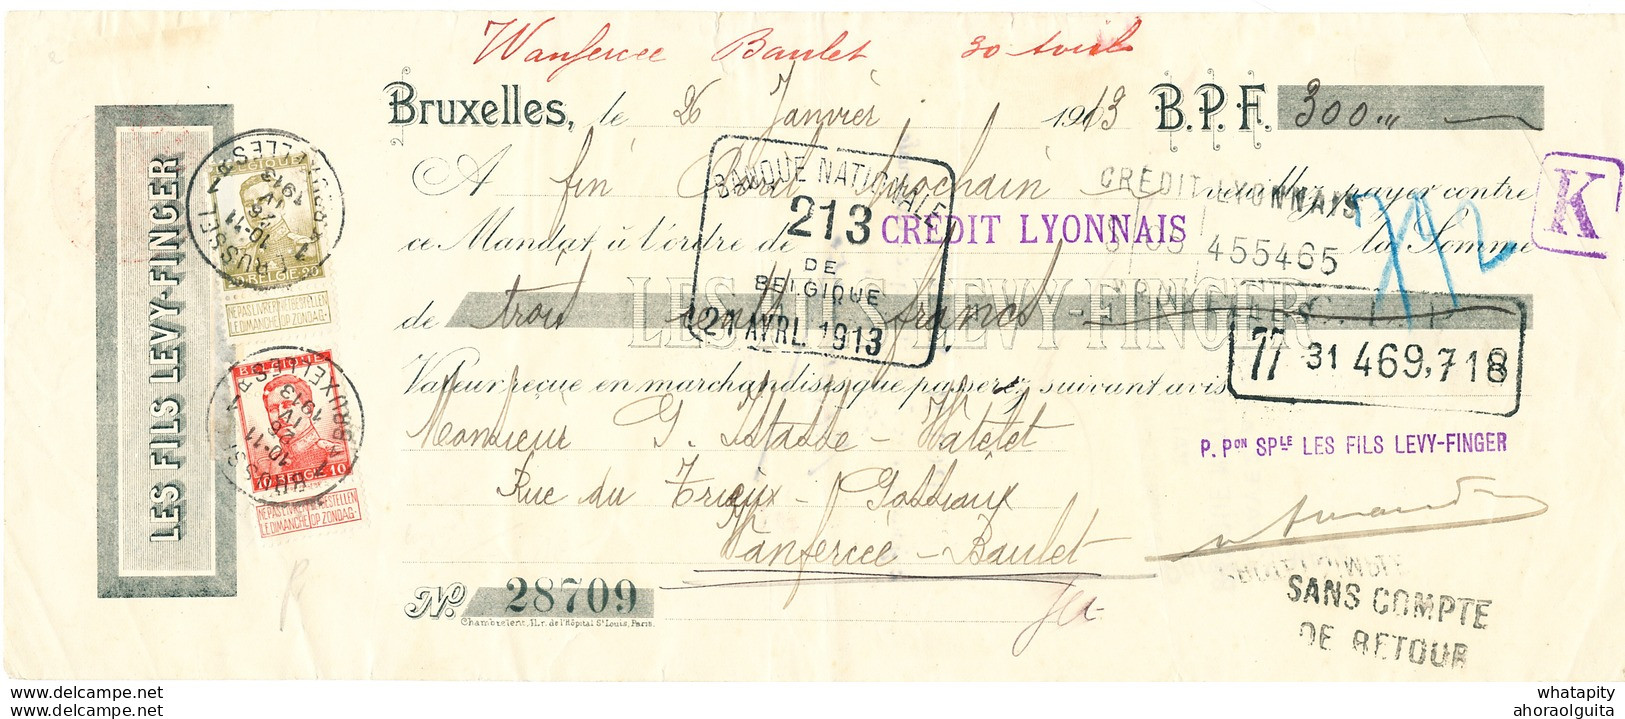 Wanfercée Baulet 30 Avril
Bruxelles, le 26 Janvier 1913 B.P.F. 300,,,
A fin Avril prochain veuillez payer contre
ce Mandat à l'ordre de CRÉDIT LYONNAIS la Somme
de trois cents francs
LES FILS LEVY-FINGER
Valeur reçue en marchandises que passerez suivant avis
Monsieur G. Istasse-Watelet
Rue du Trieux-Gossiaux
Wanfercée-Baulet
No. 28709
Chambrelent, 5 I.r. de l'Hôpital St Louis, Paris.
LES FILS LEVY-FINGER
BANQUE NATIONALE
213
DE
BELGIQUE
21 AVRL. 1913
CREDIT LYONNAIS
455465
EFFETS
77 31 469,718
K
792
P. PON SPLE LES FILS LEVY-FINGER
SANS COMPTE
DE RETOUR
BELGIQUE
BELGIE 20
NE PAS LIVRER NIET BESTELLEN
LE DIMANCHE OP ZONDAG
BELGIQUE
10 BELGIË 10
NE PAS LIVRER NIET BESTELLEN
LE DIMANCHE OP ZONDAG
BRUXELLES 1
10-11
26 IV
1913
BRUSSEL 1
BRUXELLES 1
10-11
26 IV
1913
BRUSSEL 1
whatapity
ahoraolguita
whatapity
ahoraolguita